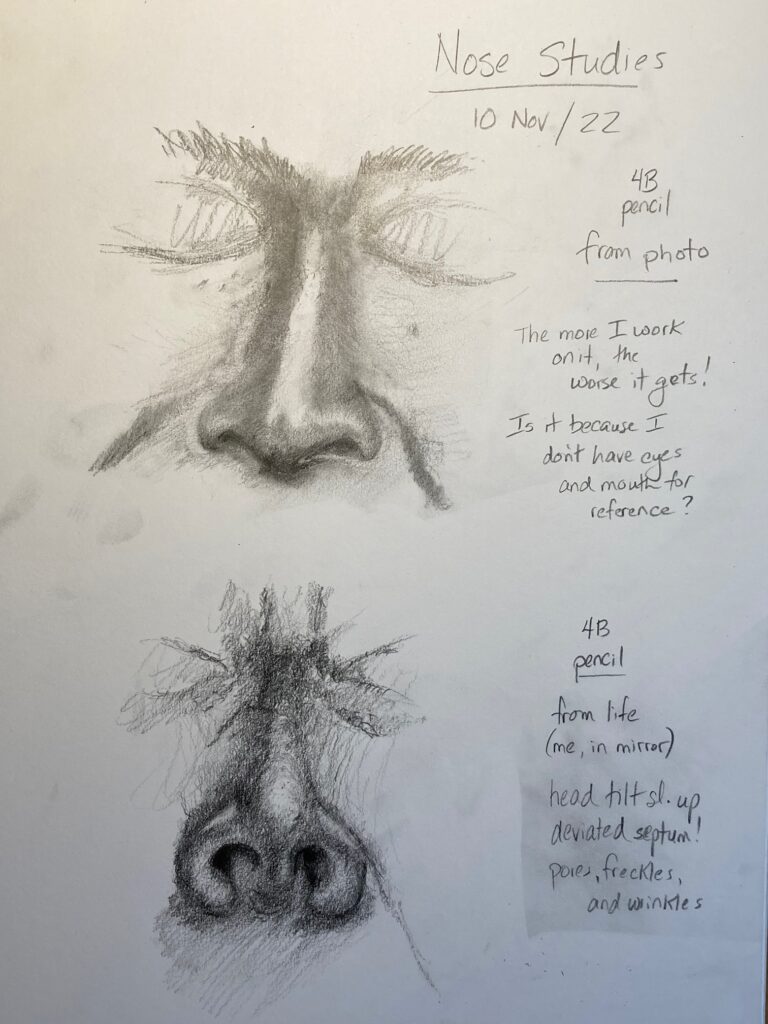 Nose Studies
10 Nov/22
4B
pencil
from photo
The more I work
on it, the
worse it gets!
Is it because I
don't have eyes
and mouth for
reference?
4B
pencil
from life
(me, in mirror)
head tilt sl. up
deviated septum!
pores, freckles,
and wrinkles